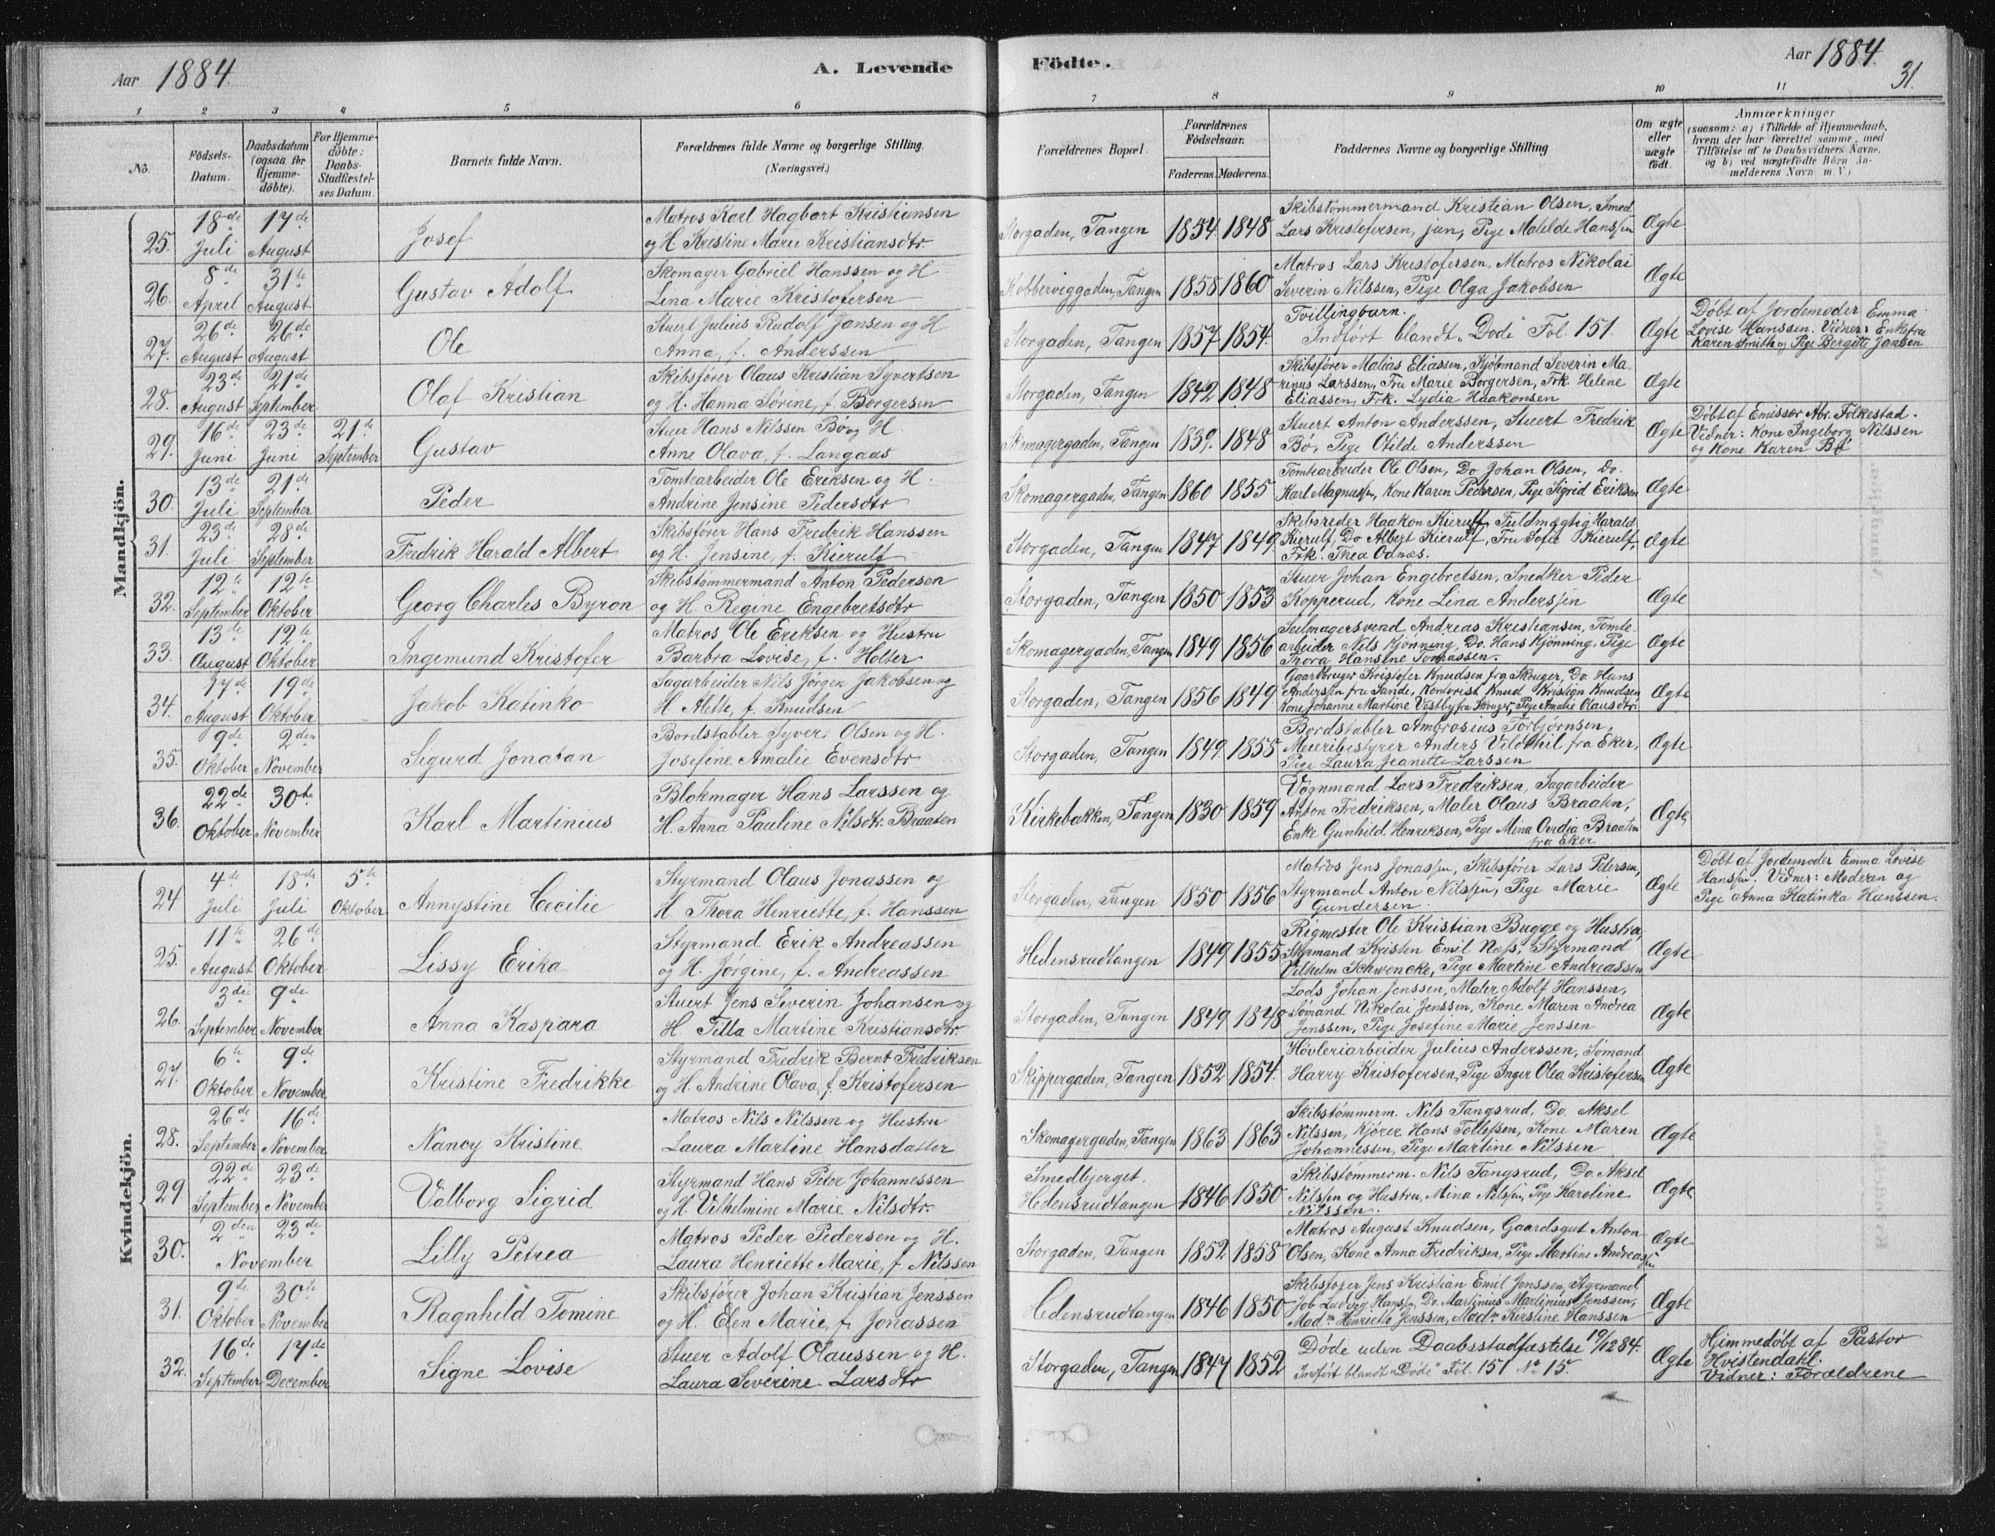 Aar 1884.
A. Levende Födte.
Aar 1884.
31.
1 2 3 4 5 6 7 8 9 10 11
No.
Födsels-Datum.
Daabsdatum (ogsaa for Hjemme-döbte).
For Hjemme-döbte: Daabs-Stadfæstel-ses Datum.
Barnets fulde Navn.
Forældrenes fulde Navne og borgerlige Stilling. (Næringsvei.)
Forældrenes Bopæl.
Forældrenes Födselsaar.
Faderens. Moderens.
Faddernes Navne og borgerlige Stilling
Om ægte eller uægte födt.
Anmærkninger (saasom: a) i Tilfælde af Hjemmedaab, hvem der har forrettet samme, med Tilföielse af to Daabsvidners Navne, og b) ved uægtefödte Börn An-melderens Navn m. V.)
Mandkjön.
25. 18de Juli 17de August Josef
Matros Karl Hagbart Kristiansen
og H. Kristine Marie Kristiansdtr
Storgaden, Tangen 1854 1848
Skibstømmermand Kristian Olsen, Smed
Lars Kristofersen, jun, Pige Matilde Hanssen
Ægte
26. 8de April 31te August Gustav Adolf
Skomager Gabriel Hanssen og H
Lina Marie Kristofersen
Kobberviggaden, Tangen 1858 1860
Matros Lars Kristofersen, Matros Nikolai
Severin Nilssen, Pige Olga Jakobsen
Ægte
27. 26de August 26de August Ole
Stuert Julius Rudolf Jansen og H
Anna, f. Anderssen
Storgaden, Tangen 1857 1854.
Tvillingbarn.
Indført blandt „Døde" Fol. 151.
Ægte
Døbt af Jordemoder Emma
Lovise Hanssen. Vidner: Enkefru
Karen Smith og Pige Bergitte Jansen
28. 23de August 21de September Olaf Kristian
Skibsfører Olaus Kristian Syvertsen
og H. Hanna Sørine, f. Borgersen
Storgaden, Tangen 1842 1848
Skibsfører Matias Eliassen, Kjøbmand Severin Ma-
rinus Larssen, Fru Marie Borgersen, Frk. Helene
Eliassen, Frk. Lydia Haakonsen
Ægte
29. 16de Juni 23de Juni 21de September Gustav
Stuer Hans Nilssen Bø og H.
Anne Olava, f. Langaas
Skomagergaden, Tangen 1839. 1848
Stuert Anton Anderssen, Stuert Fredrik
Bø, Pige Otilde Anderssen
Ægte
Døbt af Emissær Abr. Folkestad.
Vidner: Kone Ingeborg Nilssen
og Kone Karen Bø
30. 13de Juli 21de September Peder
Tomtearbeider Ole Eriksen og H.
Andrine Jensine Pedersdtr
Skomagergaden, Tangen 1860 1855
Tomtearbeider Ole Olsen, Do Johan Olsen, Do.
Karl Magnussen, Kone Karen Pedersen, Pige Sigrid Eriksen
Ægte
31. 23de Juli 28de September Fredrik Harald Albert
Skibsfører Hans Fredrik Hanssen
og H. Jensine, f. Kierulf
Storgaden, Tangen 1847 1849
Skibsreder Haakon Kierulf, Fuldmægtig Harald
Kierulf, Do Albert Kierulf, Fru Sofie Kierulf,
Frk. Thea Odnæs.
Ægte
32. 12te September 12te Oktober Georg Charles Byron
Skibstømmermand Anton Pedersen
og H. Regine Engebretsdtr
Storgaden, Tangen 1850 1853
Stuer Johan Engebretsen, Snedker Peder
Kopperud, Kone Lina Anderssen
Ægte
33. 13de August 12te Oktober Ingemund Kristofer
Matros Ole Eriksen og Hustru
Barbra Lovise, f. Holter
Skomagergaden, Tangen 1849 1856
Seilmagersvend Andreas Kristiansen, Tomte-
arbeider Nils Kjønning, Do. Hans Kjønning, Pige
Thora Hansine Tomassen.
Ægte
34. 17de August 19de Oktober Jakob Katinko
Sagarbeider Nils Jørgen Jakobsen og
H. Alette, f. Knudsen
Storgaden, Tangen 1856 1849
Gaardbruger Kristofer Knudsen fra Skouger, Do. Hans
Anderssen fra Sande, Kontorist Knud Kristian Knudsen
Kone Johanne Martine Vestby fra Skouger, Pige Amalie Olausdtr.
Ægte
35. 9de Oktober 2den November Sigurd Jonatan
Bordstabler Syver Olsen og H.
Josefine Amalie Evensdtr
Storgaden, Tangen 1849. 1855
Bordstabler Ambrosius Torbjørnsen,
Meieribestyrer Anders Vildthil fra Eker,
Pige Laura Jeanette Larssen
Ægte
36. 22de Oktober 30te November Karl Martinius
Blokmager Hans Larssen og
H. Anna Pauline Nilsdtr. Braaten
Kirkebakken, Tangen 1830 1859
Vognmand Lars Fredriksen, Sagarbeider
Anton Fredriksen, Maler Olaus Braaten,
Enke Gunhild Henriksen, Pige Mina Ovidia Braaten
fra Eker
Ægte
Kvindekjön.
24 4de Juli 18de Juli 5te Oktober Annystine Cecilie
Styrmand Olaus Jonassen og
H. Thora Henriette, f. Hanssen
Storgaden, Tangen 1850 1856
Matros Jens Jonassen, Skibsfører Lars Petersen,
Styrmand Anton Nilssen, Pige Marie
Gundersen.
Ægte
Døbt af Jordemoder Emma Lovise
Hanssen. Vidner: Moderen og
Pige Anna Katinka Hanssen.
25. 11te August 26de Oktober Lissy Erika
Styrmand Erik Andreassen
og H. Jørgine, f. Andreassen
Hedensrudtangen 1849 1855
Rigmester Ole Kristian Bugge og Hustru,
Styrmand Kristen Emil Næss, Styrmand
Vilhelm Schwencke, Pige Martine Andreassen
Ægte
26. 3die September 9de November Anna Kaspara
Stuert Jens Severin Johansen og
H. Pilla Martine Kristiansdtr
Storgaden, Tangen 1849 1848
Lods Johan Jenssen, Maler Adolf Hanssen,
Sømand Nikolai Jenssen, Kone Maren Andrea
Jenssen, Pige Josefine Marie Jenssen
Ægte
27. 6te Oktober 9de November Kristine Fredrikke
Styrmand Fredrik Bernt Fredriksen
og H. Andrine Olava, f. Kristofersen
Skippergaden, Tangen 1852 1854.
Høvleriarbeider Julius Anderssen, Sømand
Harry Kristofersen, Pige Inger Olea Kristofersen
Ægte
28. 26de September 16de November Nancy Kristine
Matros Nils Nilssen og Hustru
Laura Martine Hansdatter
Skomagergaden, Tangen 1863 1863
Skibstømmerm. Nils Tangsrud, Do. Aksel
Nilssen, Kjører Hans Tollefsen, Kone Maren
Johannessen, Pige Martine Nilssen
Ægte
29 22de September 23de November Valborg Sigrid
Styrmand Hans Peter Johannessen
og H. Vilhelmine Marie Nilsdtr.
Smedbjerget.
Hedensrudtangen 1846 1850
Skibstømmerm. Nils Tangsrud, Do. Aksel
Nilssen og Hustru, Mina Nilssen, Pige Karoline
Nilssen.
Ægte
30. 2den 23de November Lilly Petrea
Matros Peder Pedersen og H.
Laura Henriette Marie, f. Nilssen
Storgaden, Tangen 1852 1858
Matros August Knudsen, Gaardsgut Anton
Olsen, Kone Anna Fredriksen, Pige Martine Andreassen
Ægte
31. 9de Oktober 30te November Ragnhild Tomine
Skibsfører Johan Kristian Jenssen
og H. Elen Marie, f. Jonassen
Hedensrudtangen 1846 1850
Skibsfører Jens Kristian Emil Jonssen, Styrmand
Job Ludvig Hanssen, Do. Martinius Martinius Jenssen,
Madm Henriette Jenssen, Madm Kirstine Hanssen
Ægte
32. 16de September 17de December Signe Lovise
Stuer Adolf Olaussen og H.
Laura Severine Larsdtr
Storgaden, Tangen 1847 1852
Døde uden Daabsstadfæstelse 19/12 84.
Indført blandt „Døde" Fol. 151 No 15.
Ægte
Hjemmedøbt af Pastor
Hvistendahl.
Vidner: Forældrene